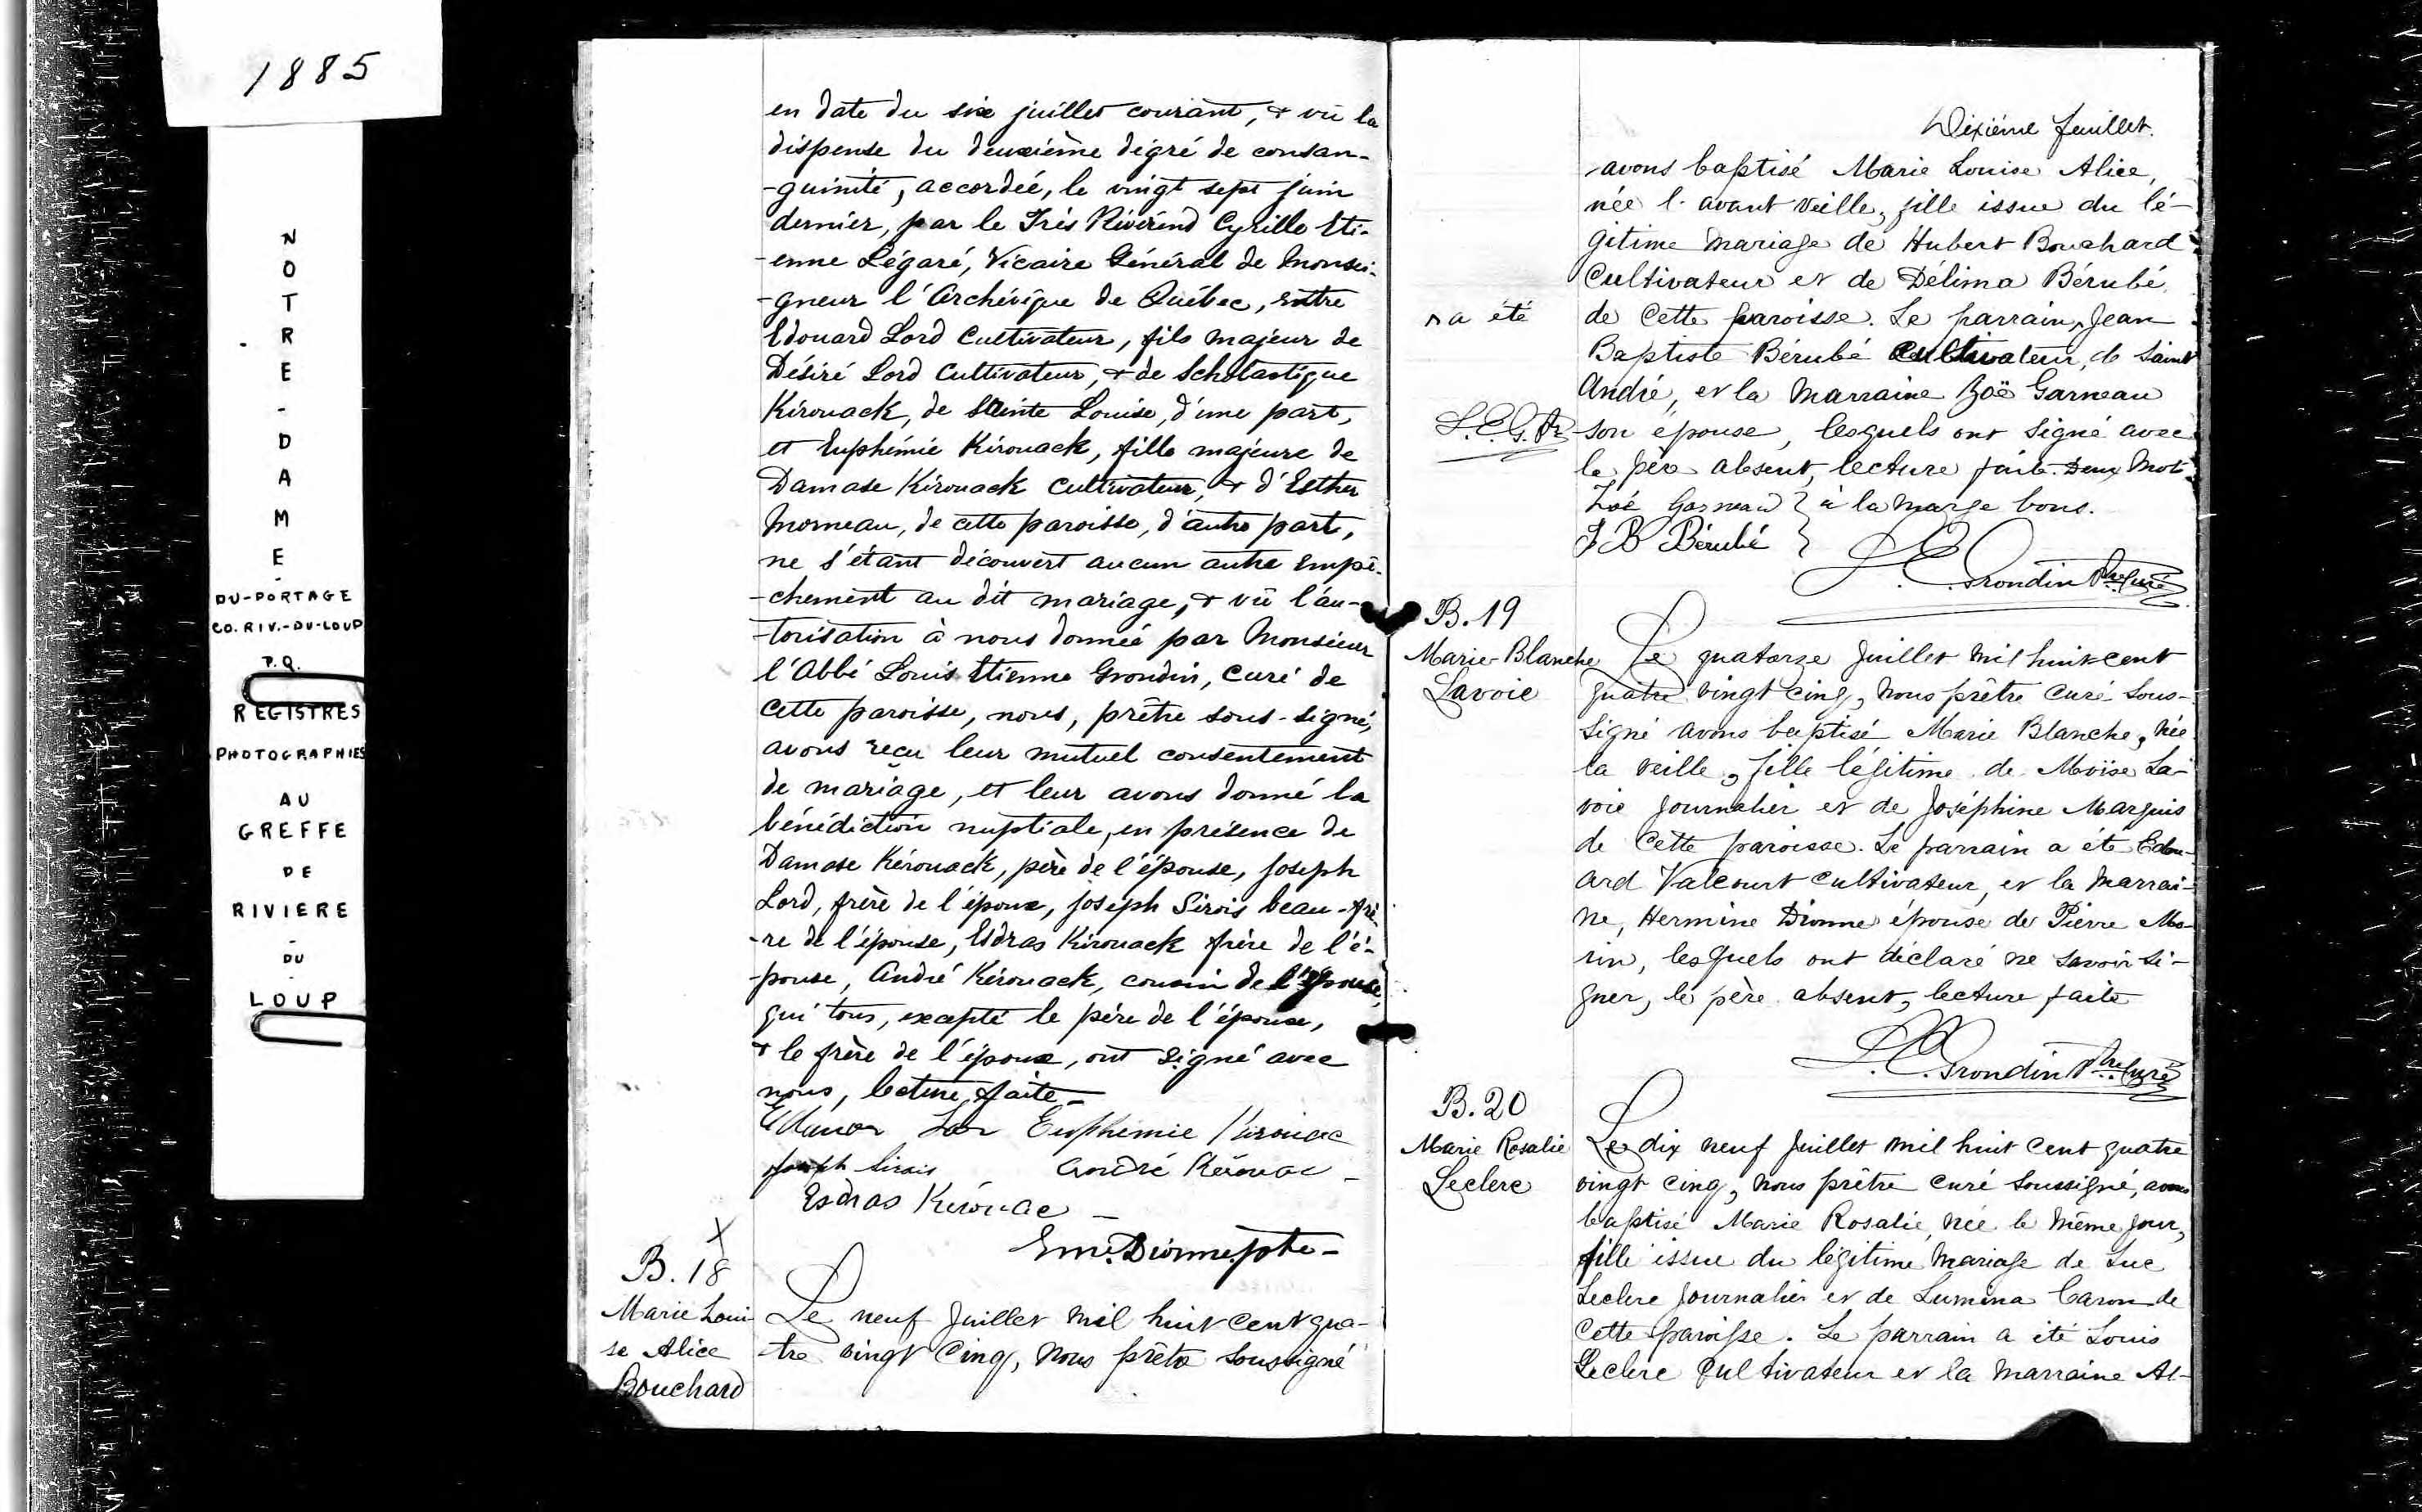 1885
NOTRE-DAME-
DU-PORTAGE
CO. RIV.-DU-LOUP
P.Q.
REGISTRES
PHOTOGRAPHIES
AU
GREFFE
DE
RIVIERE
-
DU
-
LOUP
en date du six juillet courant, & vû la
dispense du deuxième dégré de consan-
-guinité, accordée, le vingt sept juin
dernier, par le Très Révérend Cyrille Eti-
-enne Légaré, Vicaire Général de Monsei-
-gneur l'Archévêque de Québec, entre
Edouard Lord Cultivateur, fils majeur de
Désiré Lord Cultivateur, & de Scholastique
Kérouack, de Sainte Louise, d'une part,
et Euphémie Kérouack, fille majeure de
Damase Kérouack Cultivateur, & d'Esther
Morneau, de cette paroisse, d'autre part,
ne s'étant découvert aucun autre empê-
-chement au dit mariage, & vû l'au-
-torisation à nous donnée par Monsieur
l'Abbé Louis Etienne Grondin, Curé de
cette paroisse, nous, prêtre sous-signé,
avons reçu leur mutuel consentement
de mariage, et leur avons donné la
bénédiction nuptiale, en présence de
Damase Kérouack, père de l'épouse, Joseph
Lord, frère de l'époux, Joseph Sirois beau-frè-
-re de l'épouse, Esdras Kérouack frère de l'é-
-pouse, André Kérouack, cousin de l'épouse,
qui tous, excepté le père de l'épouse,
& le frère de l'époux, ont signé avec
nous, lecture faite_
Euphémie Kirouac
Joseph Sirois André Kérouac _
Esdras Kérouac _
Em. Dionne ptre_
X
B. 18
Marie Loui
se Alice
Bouchard
Le neuf Juillet mil huit cent qua-
tre vingt Cinq, Nous prêtre soussigné
Dixième feuillet.
avons baptisé Marie Louise Alice,
née l'avant veille, fille issue du lé-
gitime mariage de Hubert Bouchard
Cultivateur et de Délima Bérubé
de Cette paroisse. Le parrain, Jean
Baptiste Bérubé Cultivateur, de Saint
André, et la Marraine Zoë Garneau
son epouse, lesquels ont signé avec
le père absent, lecture faite. Deux Mots
Zoé Garneau } à la marge bons.
J B Bérubé }
L. E. Grondin Ptre Curé
a été
L.E.G. Ptr
B. 19
Marie-Blanche
Lavoie
Le quatorze Juillet mil huit cent
quatre vingt Cinq, Nous prêtre Curé Sous-
signé avons baptisé Marie Blanche, née
la veille, fille légitime de Moïse La-
voie Journalier et de Joséphine Marquis
de Cette paroisse. Le parrain a été Edou-
ard Valcourt Cultivateur, et la Marrai-
ne, Hermine Dionne épouse de Pierre Mo-
rin, lesquels ont déclaré ne savoir si-
gner, le père absent, lecture faite
L. E. Grondin Ptre Curé
B. 20
Marie Rosalie
Leclerc
Le dix neuf Juillet mil huit Cent quatre
vingt Cinq, Nous prêtre curé Soussigné, avons
baptisé Marie Rosalie, née le même jour,
fille issue du légitime Mariage de Luc
Leclerc Journalier et de Lumina Caron de
Cette paroisse. Le parrain a été Louis
Leclerc Cultivateur et la Marraine Al-